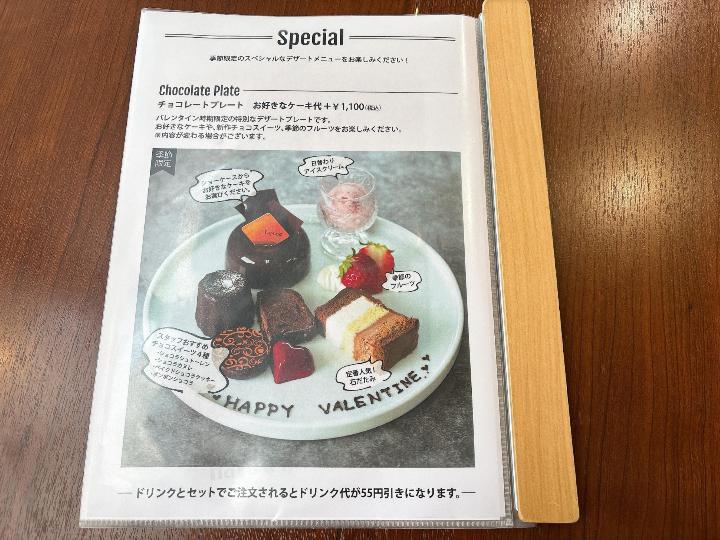 Special
季節限定のスペシャルなデザートメニューをお楽しみください！
Chocolate Plate
チョコレートプレート　お好きなケーキ代＋￥1,100(税込)
バレンタイン時期限定の特別なデザートプレートです。
お好きなケーキや、新作チョコスイーツ、季節のフルーツをお楽しみください。
※内容が変わる場合がございます。
季節
限定
ショーケースから
お好きなケーキを
お選びください。
日替わり
アイスクリーム
季節の
フルーツ
スタッフおすすめ
チョコスイーツ4種
・ショコラシュトーレン
・ショコラカヌレ
・ベイクドショコラクッキー
・ボンボンショコラ
定番人気！
石だたみ
HAPPY VALENTINE
ドリンクとセットでご注文されるとドリンク代が55円引きになります。